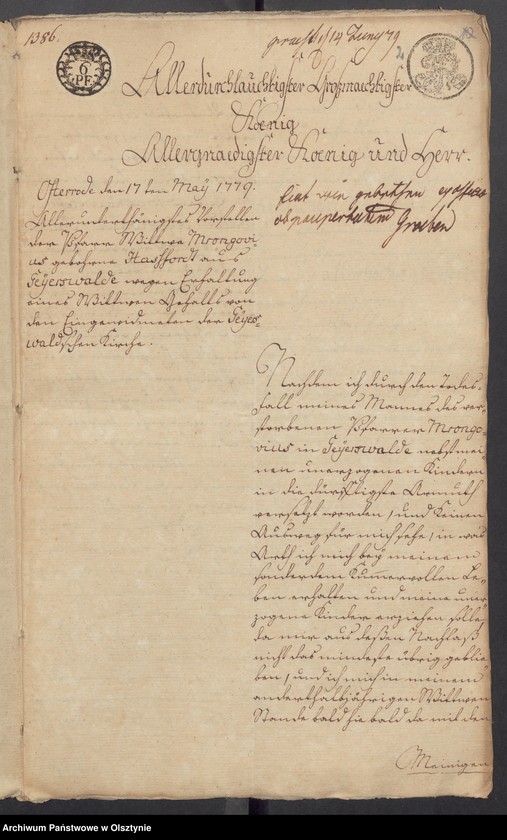 1386.
praest. 14 Juny 79
6
PF.
Allerdurchlauchtigster Großmaechtigster
Koenig
Allergnaedigster Koenig und Herr.
Osterrode den 17ten May 1779.
Allerunterthänigstes Vorstellen
der Pfarr Wittwe Mrongovi-
us gebohrne Hassfordt aus
Feyerswalde wegen Erhaltung
eines Wittwen Gehalts von
den Eingewidmeten der Feyers-
waldschen Kirche.
fiat wie gebethen
ob paupertatem Groeben
Nachdem ich durch den Todes-
fall meines Mannes des ver-
storbenen Pfarrer Mrongo-
vius in Feyerswalde nebst mei-
nen unerzogenen Kindern
in die dürfftigste Armuth
versetzt worden, und keinen
Ausweg für mich sehe, in was
Arth ich mich bey meinem
sonderdem Kummervollen Le-
ben erhalten und meine uner-
zogene Kinder erziehen solle,
da mir aus deßen Nachlaß
nicht das mindeste übrig geblie-
ben, und ich mich in meinem
anderthalbjährigen Wittwen
Stande bald hie bald da mit den
Meinigen
Archiwum Państwowe w Olsztynie